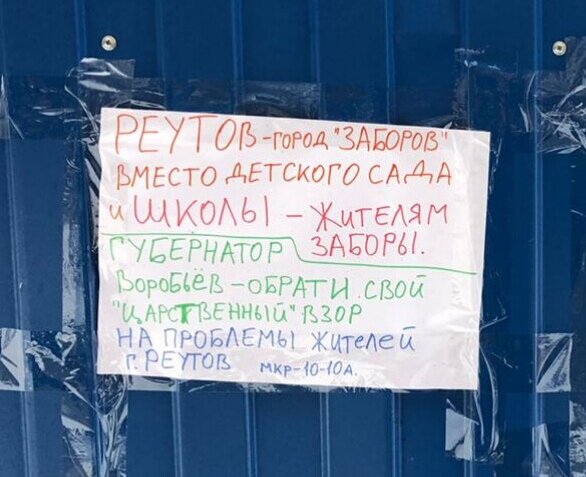 РЕУТОВ-ГОРОД "ЗАБОРОВ"
ВМЕСТО ДЕТСКОГО САДА
и ШКОЛЫ – ЖИТЕЛЯМ
ЗАБОРЫ.
ГУБЕРНАТОР
ВОРОБЬЁВ – ОБРАТИ СВОЙ
"ЦАРСТВЕННЫЙ" ВЗОР
НА ПРОБЛЕМЫ ЖИТЕЛЕЙ
Г. РЕУТОВ МКР-10-10А.